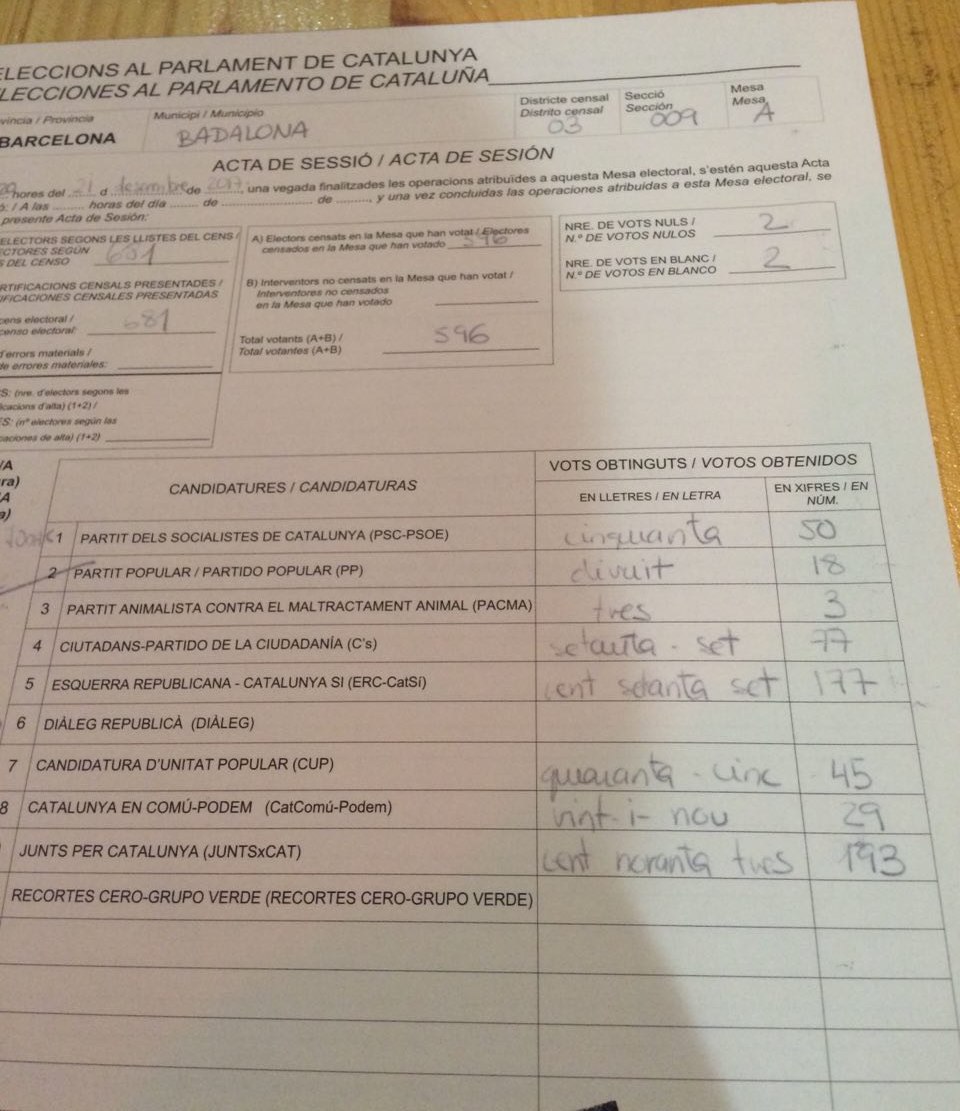 ELECCIONS AL PARLAMENT DE CATALUNYA
ELECCIONES AL PARLAMENTO DE CATALUÑA
víncia / Provincia
BARCELONA
Municipi / Municipio
BADALONA
Districte censal
Distrito censal
03
Secció
Sección
009
Mesa
Mesa
A
ACTA DE SESSIÓ / ACTA DE SESIÓN
hores del 21 d desembre de 2017, una vegada finalitzades les operacions atribuïdes a aquesta Mesa electoral, s'estén aquesta Acta
ó: / A las ......... horas del día ........ de ........................ de ........., y una vez concluidas las operaciones atribuidas a esta Mesa electoral, se
presente Acta de Sesión:
ELECTORS SEGONS LES LLISTES DEL CENS /
ECTORES SEGÚN
S DEL CENSO 681
RTIFICACIONS CENSALS PRESENTADES /
IFICACIONES CENSALES PRESENTADAS
cens electoral /
censo electoral: 681
d'errors materials /
de errores materiales:
S: (nre. d'electors segons les
icacions d'alta) (1+2) /
ES: (nº electores según las
caciones de alta) (1+2)
A) Electors censats en la Mesa que han votat / Electores
censados en la Mesa que han votado 596
B) Interventors no censats en la Mesa que han votat /
Interventores no censados
en la Mesa que han votado
Total votants (A+B) /
Total votantes (A+B) 596
NRE. DE VOTS NULS /
N.º DE VOTOS NULOS 2
NRE. DE VOTS EN BLANC /
N.º DE VOTOS EN BLANCO 2
/A
ra)
A
a)
CANDIDATURES / CANDIDATURAS
VOTS OBTINGUTS / VOTOS OBTENIDOS
EN LLETRES / EN LETRA
EN XIFRES / EN
NÚM.
1 PARTIT DELS SOCIALISTES DE CATALUNYA (PSC-PSOE) cinquanta 50
2 PARTIT POPULAR / PARTIDO POPULAR (PP) divuit 18
3 PARTIT ANIMALISTA CONTRA EL MALTRACTAMENT ANIMAL (PACMA) tres 3
4 CIUTADANS-PARTIDO DE LA CIUDADANÍA (C's) setanta - set 77
5 ESQUERRA REPUBLICANA - CATALUNYA SI (ERC-CatSí) cent setanta set 177
6 DIÀLEG REPUBLICÀ (DIÀLEG)
7 CANDIDATURA D'UNITAT POPULAR (CUP) quaranta - cinc 45
8 CATALUNYA EN COMÚ-PODEM (CatComú-Podem) vint-i-nou 29
JUNTS PER CATALUNYA (JUNTSxCAT) cent noranta tres 193
RECORTES CERO-GRUPO VERDE (RECORTES CERO-GRUPO VERDE)